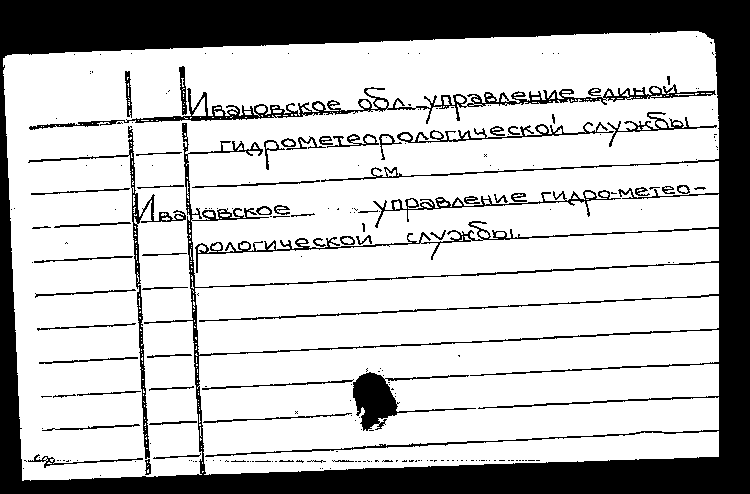 Ивановское обл. управление единой
гидрометеорологической службы
см.
Ивановское управление гидро-метео-
рологической службы.